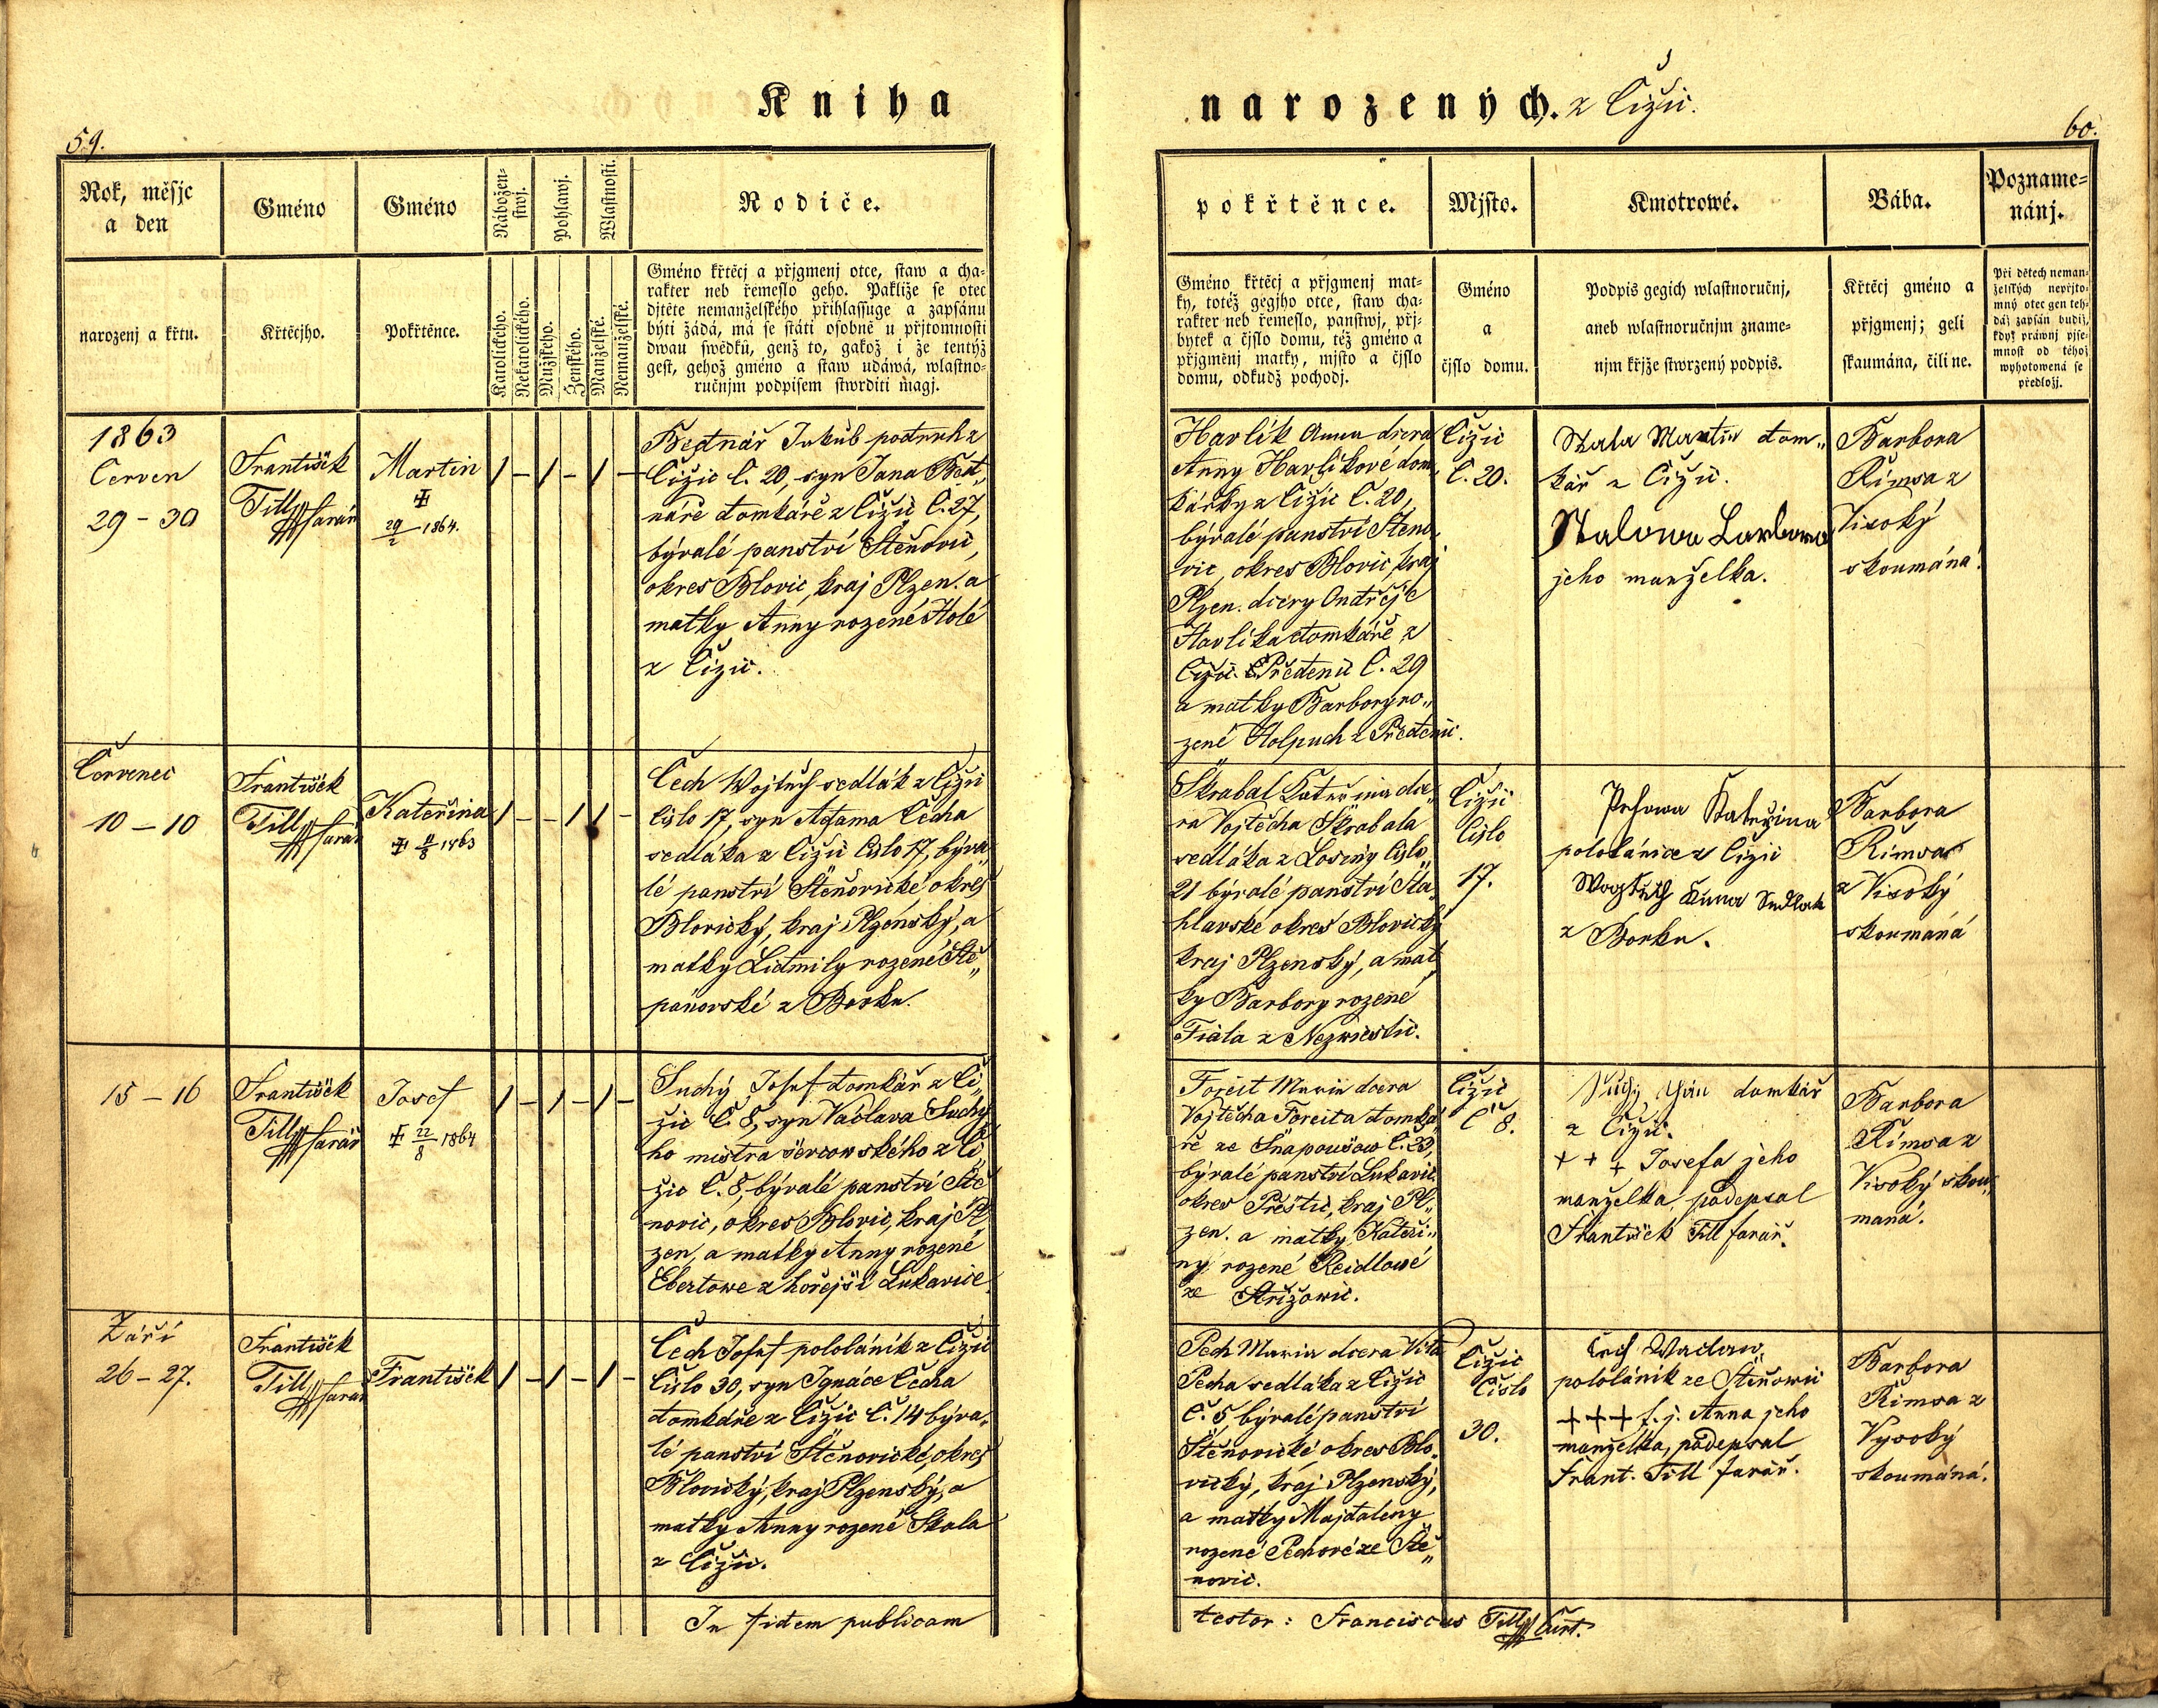 Kniha
narozených. z Čižic.
59.
60.
Rok, měsjc
a den
narozenj a křtu.
Gméno
Křtěcjho.
Gméno
Pokřtěnce.
Nábožen-
stwj.
Pohlawj.
Wlastnosti.
Katolického.
Nekatolického.
Mužského.
Ženského.
Manželské.
Nemanželské.
Rodiče.
Gméno křtěcj a přjgmenj otce, staw a cha-
rakter neb řemeslo geho. Pakliže se otec
djtěte nemanželského přihlassuge a zapsánu
býti žádá, má se státi osobně u přjtomnosti
dwau swědků, genž to, gakož i že tentýž
gest, gehož gméno a staw udáwá, wlastno-
ručnjm podpisem stwrditi magj.
pokřtěnce.
Gméno křtěcj a přjgmenj mat-
ky, totéž gegjho otce, staw cha-
rakter neb řemeslo, panstwj, přj-
bytek a čjslo domu, též gméno a
přjgmenj matky, mjsto a čjslo
domu, odkudž pochodj.
Mjsto.
Gméno
a
čjslo domu.
Kmotrowé.
Podpis gegich wlastnoručnj,
aneb wlastnoručnjm zname-
njm křjže stwrzený podpis.
Bába.
Křtěcj gméno a
přjgmenj; geli
skaumána, čili ne.
Pozname-
nánj.
Při dětech neman-
želských nepřjto-
mný otec gen teh-
dáž zapsán budiž,
když práwnj pjse-
mnost od téhož
wyhotowená se
předložj.
1863
Červen
29 - 30
František
Till farář
Martin
29/2 1864.
Bednář Jakub podruh z
Čižic č. 20, syn Jana Bed„
náře domkáře z Čižic č. 27,
býralé panství Štěňovic,
okres Blovic, kraj Plzen. a
matky Anny rozené Holé
z Čižic.
Havlík Anna dcera
Anny Havlíkové dom„
kářky z Čižic č. 20,
býralé panství Štěno„
vic, okres Blovic, kraj
Plzen. dcery Ondřeje
Havlíka domkáře z
Předenic č. 29
a matky Barbory ro„
zené Holpuch z Předenic.
Čižic
č. 20.
Skala Martin dom„
kář z Čižic.
Skalowa Barbora
jeho manželka.
Barbora
Římsa z
Visoký
skoumána.
Červenec
10 – 10
František
Till farář
Kateřina
8 1863
Čech Wojtěch sedlák z Čižic
číslo 17, syn Adama Čecha
sedláka z Čižic číslo 17, býva„
lé panství Štěňovické okres
Blovický, kraj Plzenský, a
matky Lidmily rozené Ště„
pánovské z Borku.
Škrabal Kateřina dce„
ra Vojtěcha Škrabala
sedláka z Losiny číslo
21 býralé panství Šťa„
hlavské okres Blovický
kraj Plzenský, a mat„
ky Barbory rozené
Fiala z Nezwěstic.
Čižic
číslo
17.
Kateřina
pololánice z Čižic
Anna Sedlak
z Borku.
Barbora
Římsa
z Visoký
skoumáná
15 – 16
František
Till farář
Josef
22/8 1864
Suchý Josef domkář z Či„
žic č. 8, syn Václava Suché„
ho mistra ševcowského z Či„
žic č. 8, býralé panství Ště„
novic, okres Blovic, kraj Pl„
zen, a matky Anny rozené
Ebertowe z hořejší Lukavice.
Forejt Marie dcera
Vojtěcha Foreita domká„
ře ze Šnapoušow č. 23,
býralé panství Lukavic.
okres Přeštic, kraj Pl„
zen. a matky Kateři„
ny rozené Reidlowé
ze Střižowic.
Čižic
č 8.
Suchý Jan domkář
z Čižic.
+ + + Josefa jeho
manželka, podepsal
František Till farář.
Barbora
Římsa z
Visoký skou„
maná.
Září
26 – 27.
František
Till farář
František
Čech Josef pololáník z Čižic
číslo 30, syn Ignáce Čecha
domkáře z Čižic č. 14 býra„
lé panství Štěňovické, okres
Blovický, kraj Plzenský, a
matky Anny rozené Skala
z Čižic.
Pech Maria dcera Víta
Pecha sedláka z Čižic
č. 5, býralé panství
Štěňovické okres Blo„
vický, kraj Plzenský,
a matky Majdaleny
rozené Pechové ze Ště„
novic.
Čižic
číslo
30.
Čech Wáclaw,
pololáník ze Štěňowic
+++ t. j. Anna jeho
manželka, podepsal
Frant. Till farář.
Barbora
Římsa z
Vysoký
skoumáná.
In fidem publicam
testor: Franciscus Till Curt.